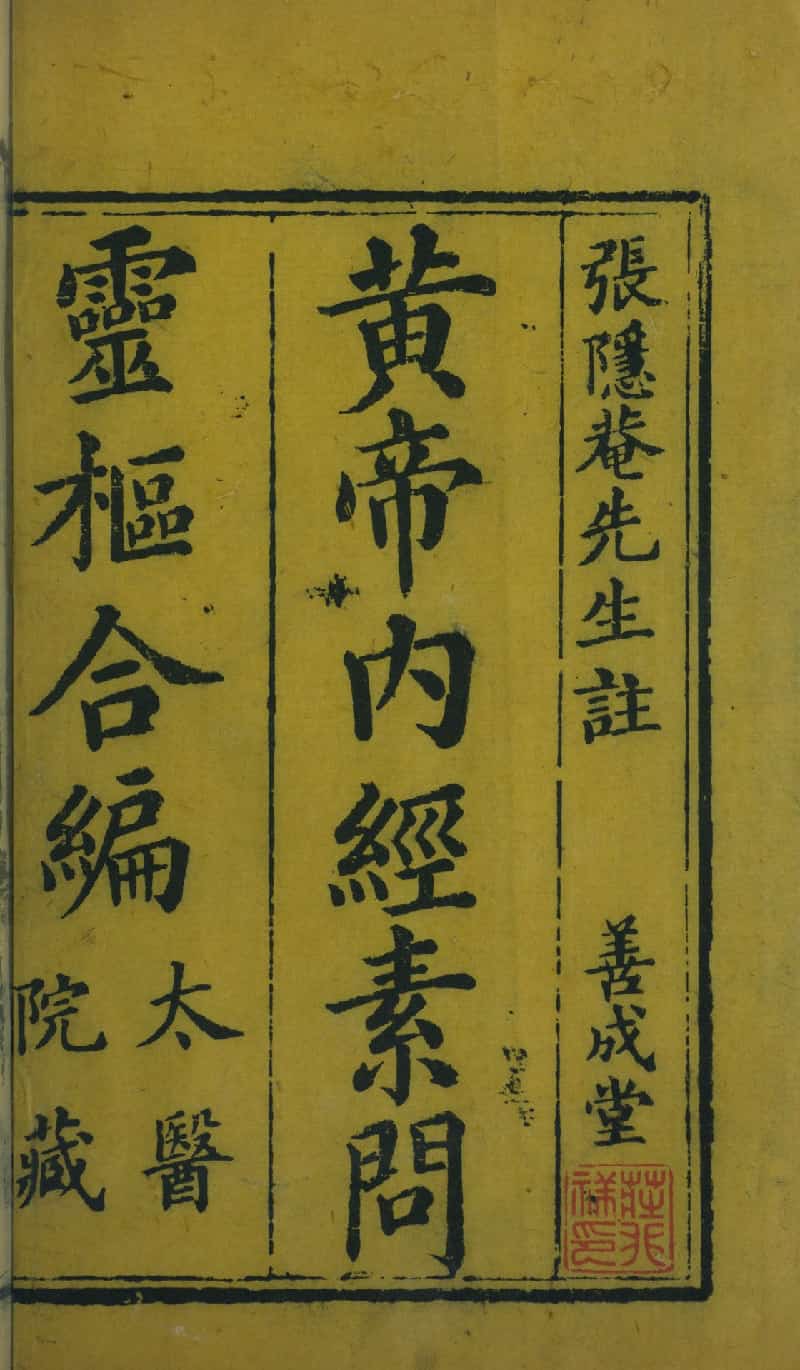 張隱菴先生註 善成堂
黄帝内經素問
靈樞合編
太醫
院藏